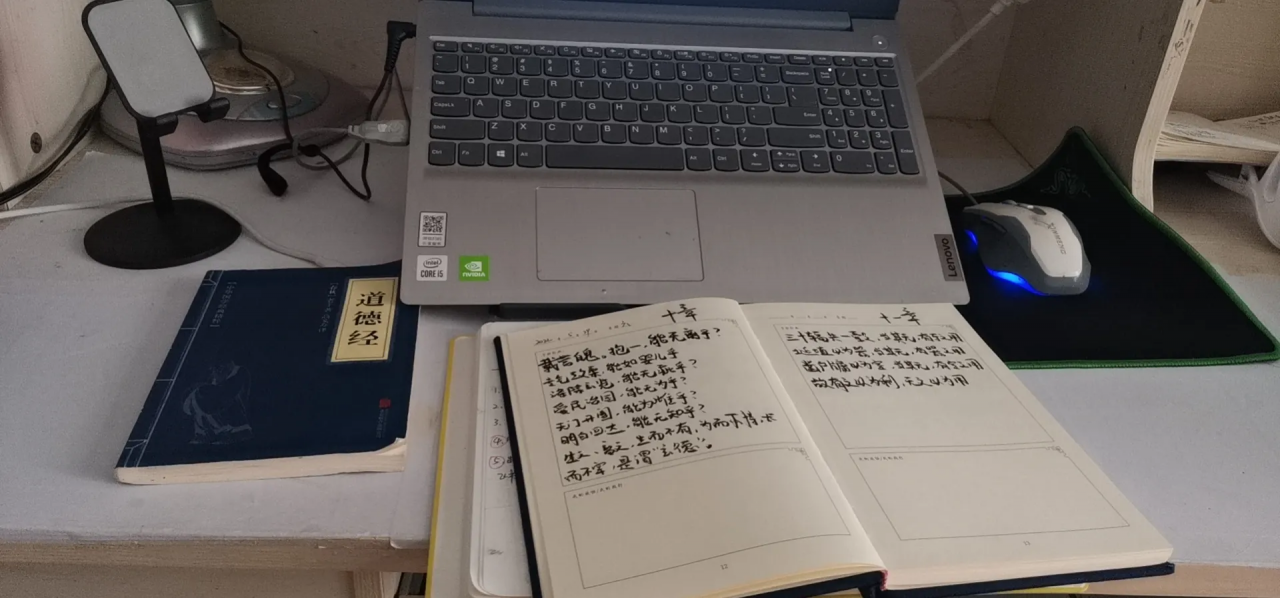 道德经
CORE i5
NVIDIA
Lenovo
十章
载营魄。抱一,能无离乎?
专气致柔,能如婴儿乎
涤除玄览,能无疵乎?
爱民治国,能无为乎?
天门开阖,能为雌乎?
明白四达,能无知乎?
生之、畜之,生而不有,为而不恃,长
而不宰,是谓"玄德"。
12
十一章
三十辐共一毂,当其无,有车之用
埏埴以为器,当其无,有器之用
凿户牖以为室,当其无,有室之用
故有之以为利,无之以为用
13